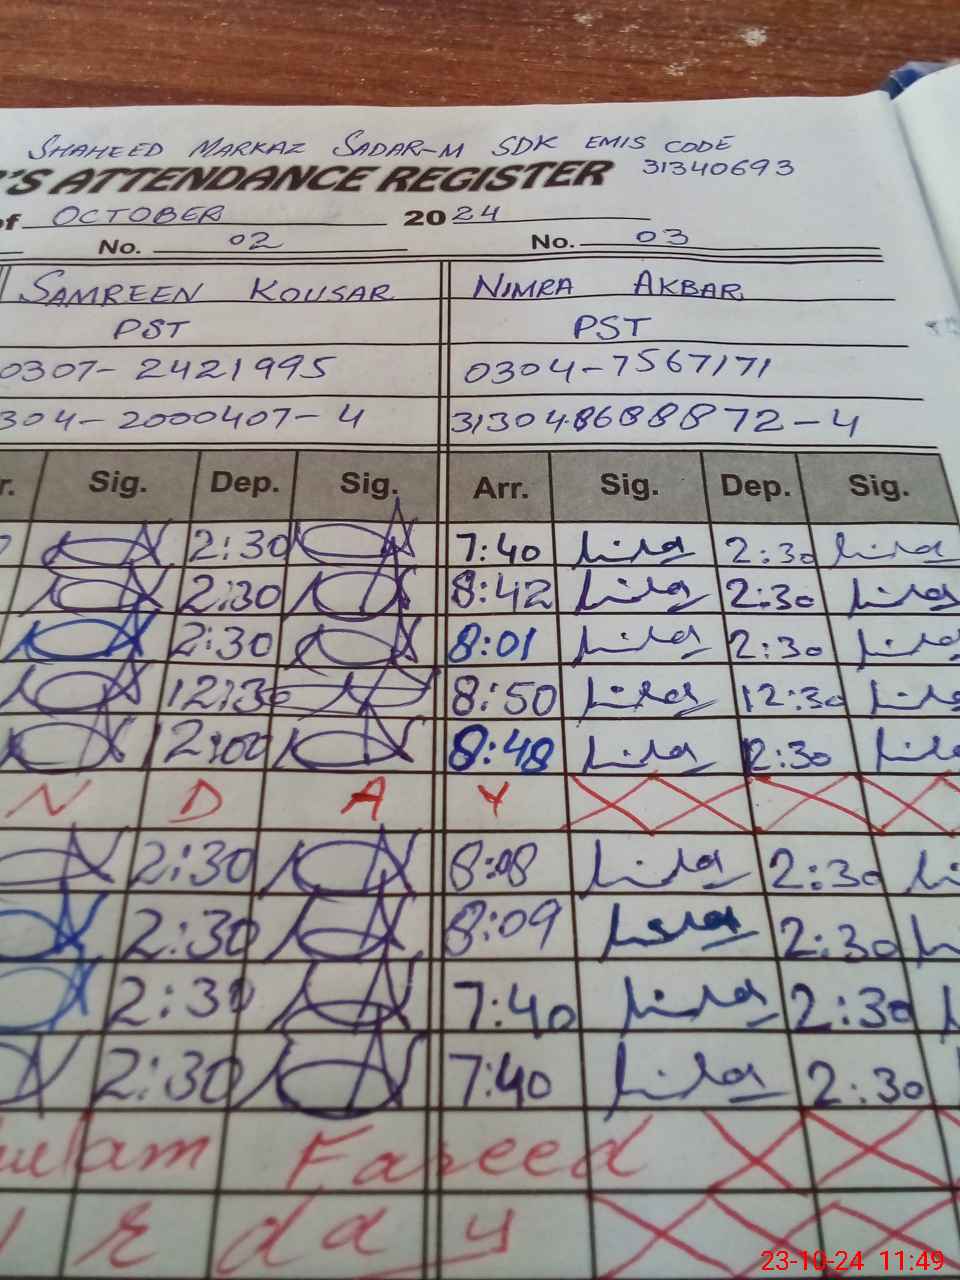 SHAHEED MARKAZ SADAR-M SDK EMIS CODE
'S ATTENDANCE REGISTER 31340693
of OCTOBER 2024
No. 02 No. 03
SAMREEN KOUSAR NIMRA AKBAR
PST PST
0307-2421995 0304-7567171
304-2000407-4 313048688872-4
r. Sig. Dep. Sig. Arr. Sig. Dep. Sig.
2:30 7:40 2:30
2:30 8:42 2:30
2:30 8:01 2:30
12:30 8:50 12:30
12:00 8:48 2:30
N D A Y
2:30 8:08 2:30
2:30 8:09 2:30
2:30 7:40 2:30
2:30 7:40 2:30
ulam Fareed
day
23-10-24 11:49